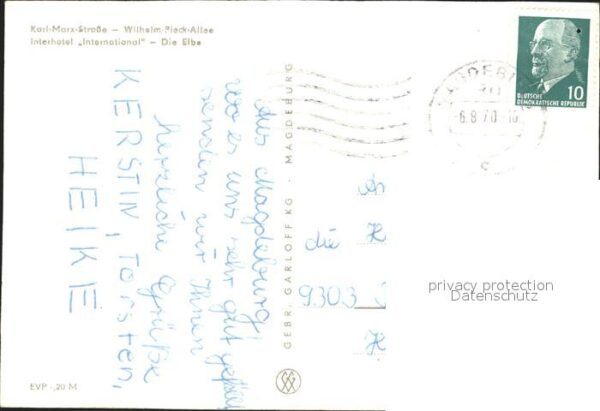 Karl-Marx-Straße – Wilhelm-Pieck-Allee
Interhotel „International" – Die Elbe
Aus Magdeburg
wo es uns sehr gut gefällt
senden wir Ihnen
herzliche Grüße
KERSTIN, Torsten,
HEIKE
GEBR. GARLOFF KG · MAGDEBURG
EVP -,20 M
DEUTSCHE
DEMOKRATISCHE REPUBLIK
10
MAGDEBURG
6.8.70
c
An
die
9303
privacy protection
Datenschutz